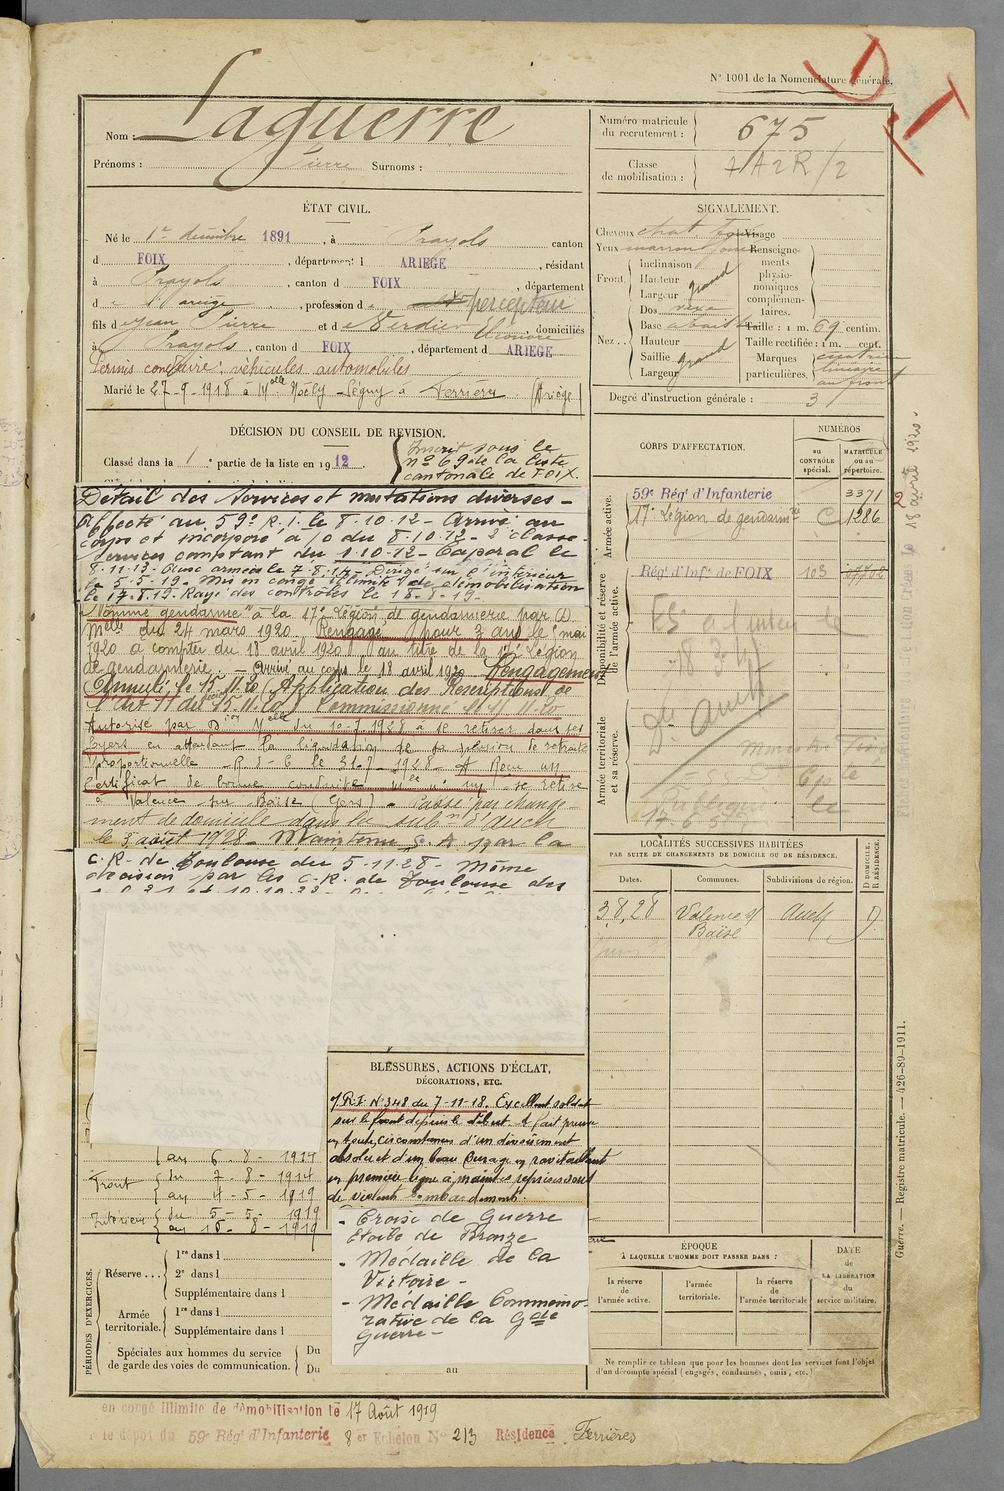 N° 1001 de la Nomenclature générale.
Nom : Laguerre
Prénoms : Pierre Surnoms :
Numéro matricule du recrutement : 675
Classe de mobilisation : 
ÉTAT CIVIL.
Né le 1er décembre 1891, à Prayols canton
d FOIX, département d ARIEGE, résidant
à Prayols, canton d FOIX, département
d e l'Ariège, profession d e percepteur
fils de Jean Pierre et de Verdier Eléonore, domiciliés
à Prayols, canton d FOIX, département d ARIEGE
Permis conduire véhicules automobiles
Marié le 27-9-1918 à Melle Noëly Ségny à Ferrières (Ariège)
SIGNALEMENT.
Cheveux chat. Visage
Yeux marron Renseignements physionomiques complémentaires.
Front. Inclinaison
Hauteur grand
Largeur
Nez. Dos vexe
Base abaissée Taille : 1 m. 69 centim.
Hauteur Taille rectifiée : 1 m. cent.
Saillie grand Marques particulières. cicatrice linéaire au front
Largeur
Degré d'instruction générale : 3
DÉCISION DU CONSEIL DE REVISION.
Classé dans la 1 partie de la liste en 1912.
Inscrit sous le
n° 69 de la liste
cantonale de FOIX.
Détail des Services et mutations diverses -
Affecté au 59e R.I. le 8.10.12 - Arrivé au
corps et incorporé à /c du 8.10.12 - 2e classe
Services comptant du 1.10.12 - Caporal le
8.11.13. Aux armées le 7.8.14 - Dirigé sur l'intérieur
le 5.5.19 - Mis en congé illimité de démobilisation
le 17.8.19. Rayé des contrôles le 18-8-19-
Nommé gendarme à la 17e Légion de gendarmerie par D.
Melle du 24 mars 1920. Rengagé pour 3 ans le mai
1920 à compter du 18 avril 1920 au titre de la 17e Légion
de gendarmerie. - Arrivé au corps le 18 avril 1920 Rengagement
Annulé le 15.11.20 (Application des Prescriptions de
l'art 11 du 15.11.20) Commissionné le
Autorisé par Don Melle du 10-7-1928 à se retirer dans ses
foyers en attendant la liquidation de sa pension de retraite
proportionnelle - R.d.C. le 31-7-1928 - A Reçu un
certificat de bonne conduite se retire
à Valence sur Baïse (Gers) - Passé par change-
ment de domicile dans la subon d'Auch
le 3 août 1928 - Maintenu S.A. par la
C.R. de Toulouse du 5-11-28 - Même
décision par les C.R. de Toulouse des
CORPS D'AFFECTATION.
NUMÉROS
au CONTRÔLE spécial. MATRICULE ou au répertoire.
Armée active.
59e Régt d'Infanterie 3371
17e Légion de gendarmrie C 1286
Disponibilité et réserve de l'armée active.
Régt d'Infie de FOIX 103
Armée territoriale et sa réserve.
LOCALITÉS SUCCESSIVES HABITÉES
PAR SUITE DE CHANGEMENTS DE DOMICILE OU DE RÉSIDENCE.
Dates. Communes. Subdivisions de région. D DOMICILE. R RÉSIDENCE.
3,8,28 Valence s/ Baïse Auch D.
BLESSURES, ACTIONS D'ÉCLAT,
DÉCORATIONS, ETC.
O.R.I. N° 348 du 7-11-18. Excellent soldat
sur le front depuis le début. A fait preuve
en toutes circonstances d'un dévouement
absolu et d'un beau courage en ravitaillant
en première ligne à maintes reprises sous
de violents bombardements.
- Croix de Guerre
Etoile de Bronze
- Médaille de la
Victoire -
- Médaille Commémo-
rative de la Gde
Guerre -
au 6 - 8 - 1914
Front du 7 - 8 - 1914
au 4 - 5 - 1919
Intérieur du 5 - 5 - 1919
au 16 - 8 - 1919
PÉRIODES D'EXERCICES.
Réserve... 1re dans l
2e dans l
Supplémentaire dans l
Armée territoriale. 1re dans l
Supplémentaire dans l
Spéciales aux hommes du service de garde des voies de communication. Du
Du au
ÉPOQUE
À LAQUELLE L'HOMME DOIT PASSER DANS :
la réserve de l'armée active. l'armée territoriale. la réserve de l'armée territoriale
DATE DE LA LIBÉRATION du service militaire.
Ne remplir ce tableau que pour les hommes dont les services font l'objet
d'un décompte spécial (engagés, condamnés, omis, etc.)
Guerre. — Registre matricule. — 426-89-1911.
en congé illimité de démobilisation le 17 Août 1919
le dépôt du 59e Régt d'Infanterie 8 er Echelon N° 213 Résidence Ferrières